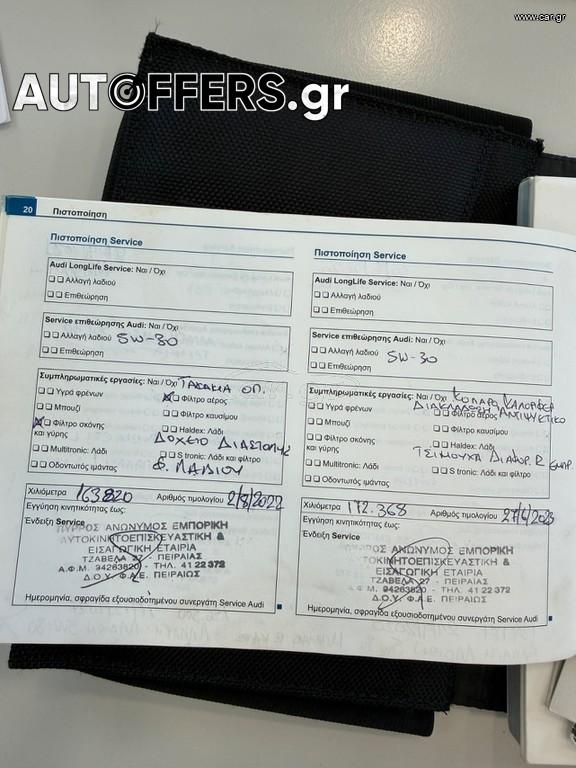 www.car.gr
AUTOFFERS.gr
20
Πιστοποίηση
Πιστοποίηση Service
Audi LongLife Service: Ναι / Όχι
Αλλαγή λαδιού
Επιθεώρηση
Service επιθεώρησης Audi: Ναι / Όχι
Αλλαγή λαδιού 5W-30
Επιθεώρηση
Συμπληρωματικές εργασίες: Ναι / Όχι ΤΑΚΑΚΙΑ ΟΠ.
Υγρά φρένων
Φίλτρο αέρος
Μπουζί
Φίλτρο καυσίμου
Φίλτρο σκόνης και γύρης
Haldex: Λάδι
ΔΟΧΕΙΟ ΔΙΑΣΤΟΛΗΣ
Multitronic: Λάδι
S tronic: Λάδι και φίλτρο
Οδοντωτός ιμάντας
Φ. ΛΑΔΙΟΥ
Χιλιόμετρα 163820 Αριθμός τιμολογίου 2/8/2022
Εγγύηση κινητικότητας έως:
Ένδειξη Service
ΑΝΩΝΥΜΟΣ ΕΜΠΟΡΙΚΗ
ΑΥΤΟΚΙΝΗΤΟΕΠΙΣΚΕΥΑΣΤΙΚΗ &
ΕΙΣΑΓΩΓΙΚΗ ΕΤΑΙΡΙΑ
ΤΖΑΒΕΛΑ 27 - ΠΕΙΡΑΙΑΣ
Α.Φ.Μ. 94263820 - ΤΗΛ. 41 22 372
Δ.Ο.Υ. Φ.Α.Ε. ΠΕΙΡΑΙΩΣ
Ημερομηνία, σφραγίδα εξουσιοδοτημένου συνεργάτη Service Audi
Πιστοποίηση Service
Audi LongLife Service: Ναι / Όχι
Αλλαγή λαδιού
Επιθεώρηση
Service επιθεώρησης Audi: Ναι / Όχι
Αλλαγή λαδιού 5W-30
Επιθεώρηση
Συμπληρωματικές εργασίες: Ναι / Όχι ΚΟΛΑΡΟ ΚΑΛΟΡΙΦΕΡ
ΔΙΑΚΛΑΔΩΣΗ ΑΝΤΙΨΥΚΤΙΚΟ
Υγρά φρένων
Φίλτρο αέρος
Μπουζί
Φίλτρο καυσίμου
Φίλτρο σκόνης και γύρης
Haldex: Λάδι
ΤΣΙΜΟΥΧΑ ΔΙΑΦΟΡ. R ΕΜΠΡ.
Multitronic: Λάδι
S tronic: Λάδι και φίλτρο
Οδοντωτός ιμάντας
Χιλιόμετρα 172.368 Αριθμός τιμολογίου 27/6/2023
Εγγύηση κινητικότητας έως:
Ένδειξη Service
ΑΝΩΝΥΜΟΣ ΕΜΠΟΡΙΚΗ
ΕΙΣΑΓΩΓΙΚΗ ΕΤΑΙΡΙΑ
ΤΖΑΒΕΛΑ 27 - ΠΕΙΡΑΙΑΣ
94263820 - ΤΗΛ. 41 22 372
Δ.Ο.Υ. Φ.Α.Ε. ΠΕΙΡΑΙΩΣ
Ημερομηνία, σφραγίδα εξουσιοδοτημένου συνεργάτη Service Audi